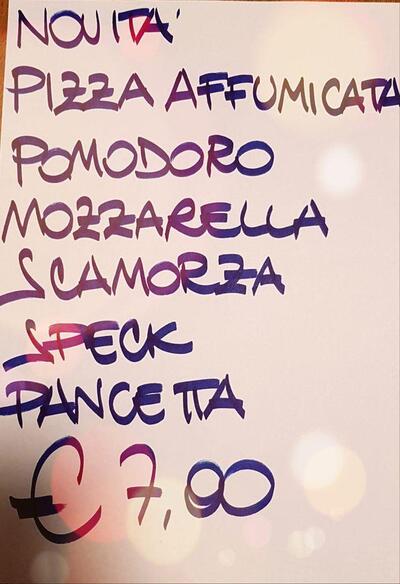 NOVITA'
PIZZA AFFUMICATA
POMODORO
MOZZARELLA
SCAMORZA
SPECK
PANCETTA
€ 7,00